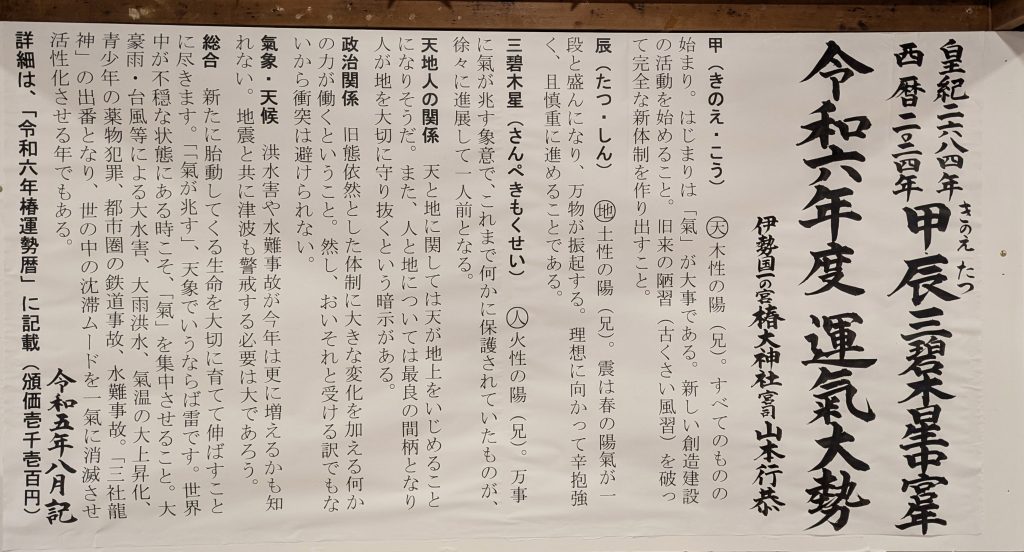 皇紀二六八四年
西暦二〇二四年
甲辰三碧木星中宮年
きのえ たつ
令和六年度 運氣大勢
伊勢国一の宮椿大神社宮司山本行恭
甲(きのえ・こう) 天木性の陽(兄)。すべてのものの
始まり。はじまりは「氣」が大事である。新しい創造建設
の活動を始めること。旧来の陋習(古くさい風習)を破っ
て完全な新体制を作り出すこと。
辰(たつ・しん) 地土性の陽(兄)。震は春の陽氣が一
段と盛んになり、万物が振起する。理想に向かって辛抱強
く、且慎重に進めることである。
三碧木星(さんぺきもくせい) 人火性の陽(兄)。万事
に氣が兆す象意で、これまで何かに保護されていたものが、
徐々に進展して一人前となる。
天地人の関係 天と地に関しては天が地上をいじめること
になりそうだ。また、人と地については最良の間柄となり
人が地を大切に守り抜くという暗示がある。
政治関係 旧態依然とした体制に大きな変化を加える何か
の力が働くということ。然し、おいそれと受ける訳でもな
いから衝突は避けられない。
氣象・天候 洪水害や水難事故が今年は更に増えるかも知
れない。地震と共に津波も警戒する必要は大であろう。
総合 新たに胎動してくる生命を大切に育てて伸ばすこと
に尽きます。「「氣が兆す」、天象でいうならば雷です。世界
中が不穏な状態にある時こそ、「氣」を集中させること。大
豪雨・台風等による大水害、大雨洪水、氣温の大上昇化、
青少年の薬物犯罪、都市圏の鉄道事故、水難事故。「三社龍
神」の出番となり、世の中の沈滞ムードを一氣に消滅させ
活性化させる年でもある。
令和五年八月記
詳細は、「令和六年椿運勢暦」に記載(頒価壱千壱百円)